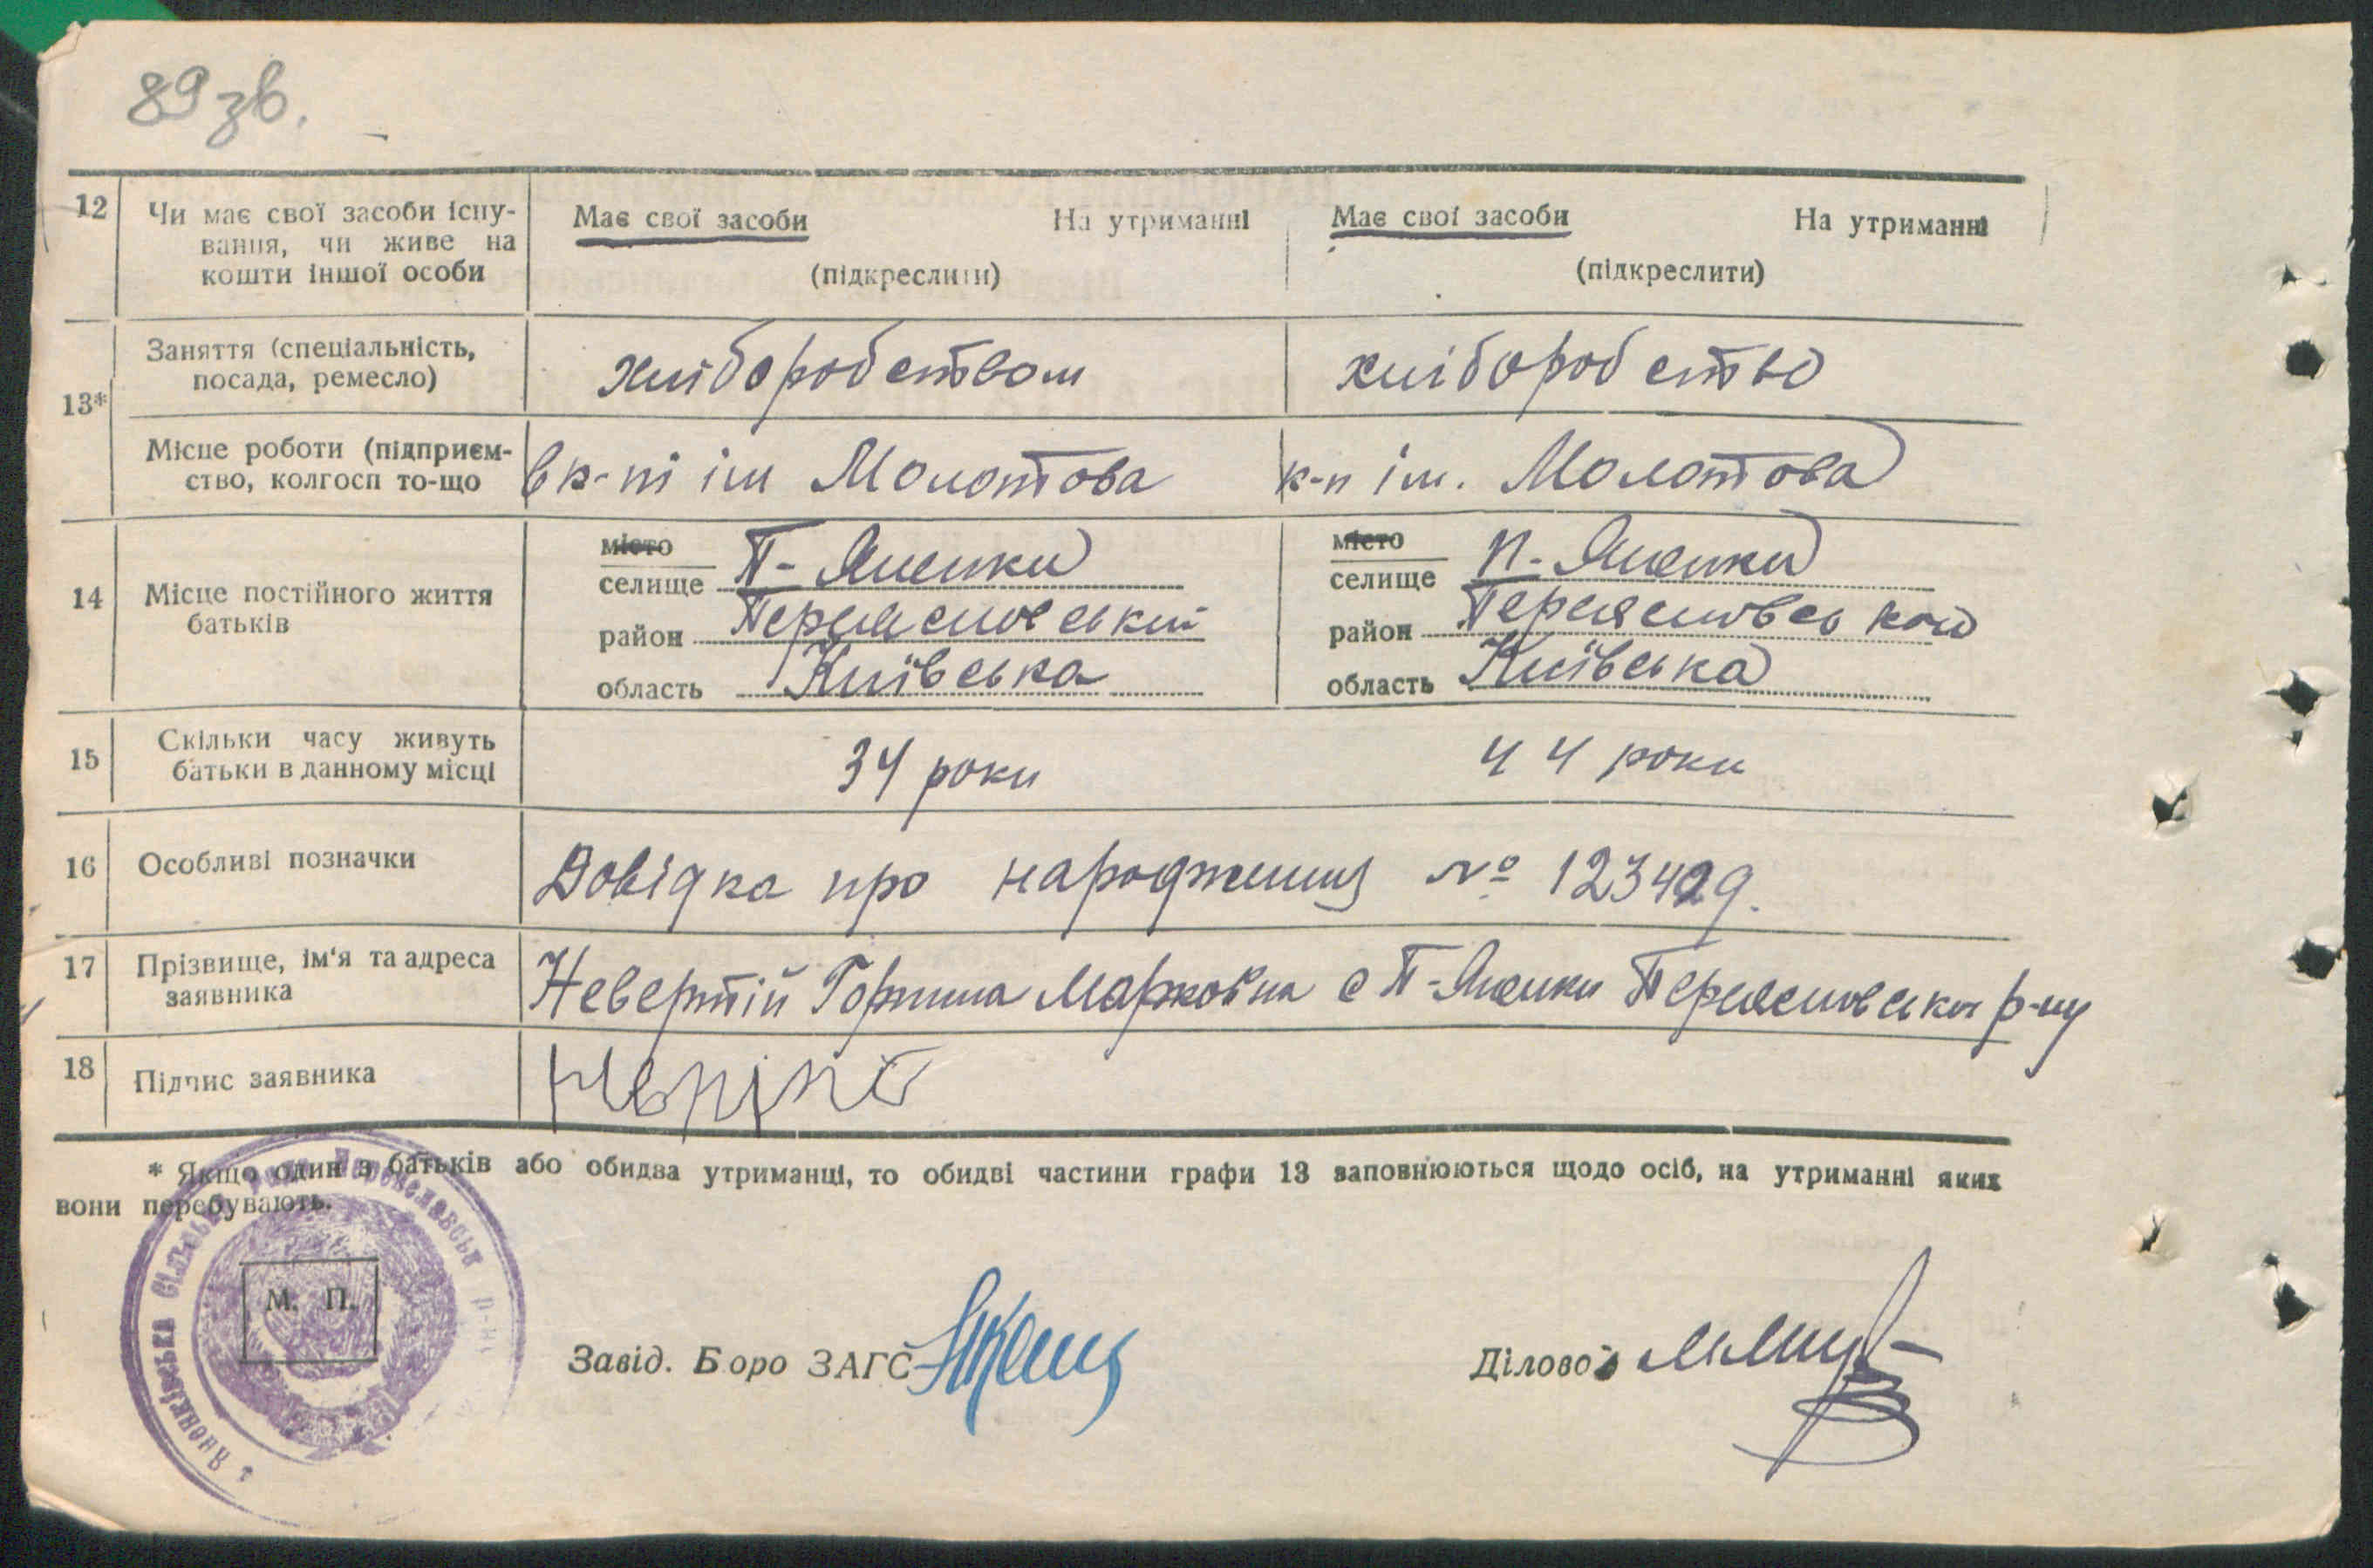 89 зв.
12 Чи має свої засоби існу-
вання, чи живе на
кошти іншої особи
Має свої засоби На утриманні
(підкреслити)
Має свої засоби На утриманні
(підкреслити)
13* Заняття (спеціальність,
посада, ремесло)
хліборобством
хліборобство
Місце роботи (підприєм-
ство, колгосп то-що
в к-пі ім Молотова
к-п ім. Молотова
14 Місце постійного життя
батьків
місто
селище П-Яненки
район Переяславський
область Київська
місто
селище П-Яненки
район Переяславської
область Київська
15 Скільки часу живуть
батьки в данному місці
34 роки
44 роки
16 Особливі позначки
Довідка про народження № 123429.
17 Прізвище, ім'я та адреса
заявника
Маркович с П-Яненки р-ну
18 Підпис заявника
* Якщо один з батьків або обидва утриманці, то обидві частини графи 13 заповнюються щодо осіб, на утриманні яких
вони перебувають.
М. П.
Завід. Бюро ЗАГС
Діловод